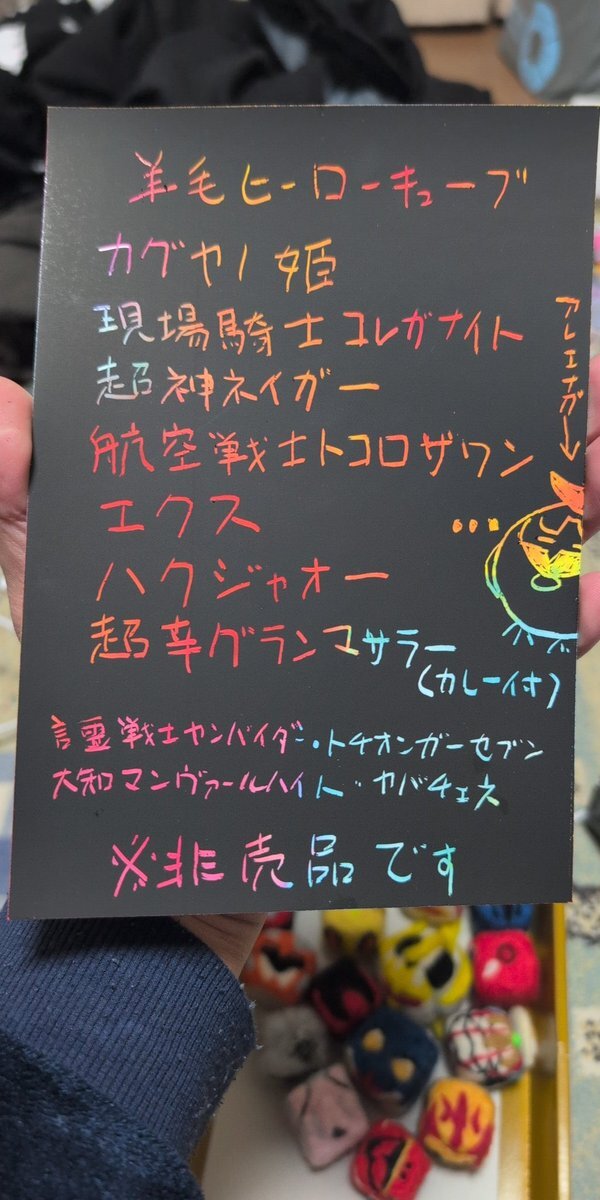 羊毛ヒーローキューブ
カグヤノ姫
現場騎士コレガナイト
超神ネイガー
航空戦士トコロザワン
エクス
ハクジャオー
超辛グランマサラー
(カレー付)
アレエナガ↓
言霊戦士ヤンバイダー・トチオンガーセブン
大和マンヴァールハイト・ヤバチェネ
※非売品です